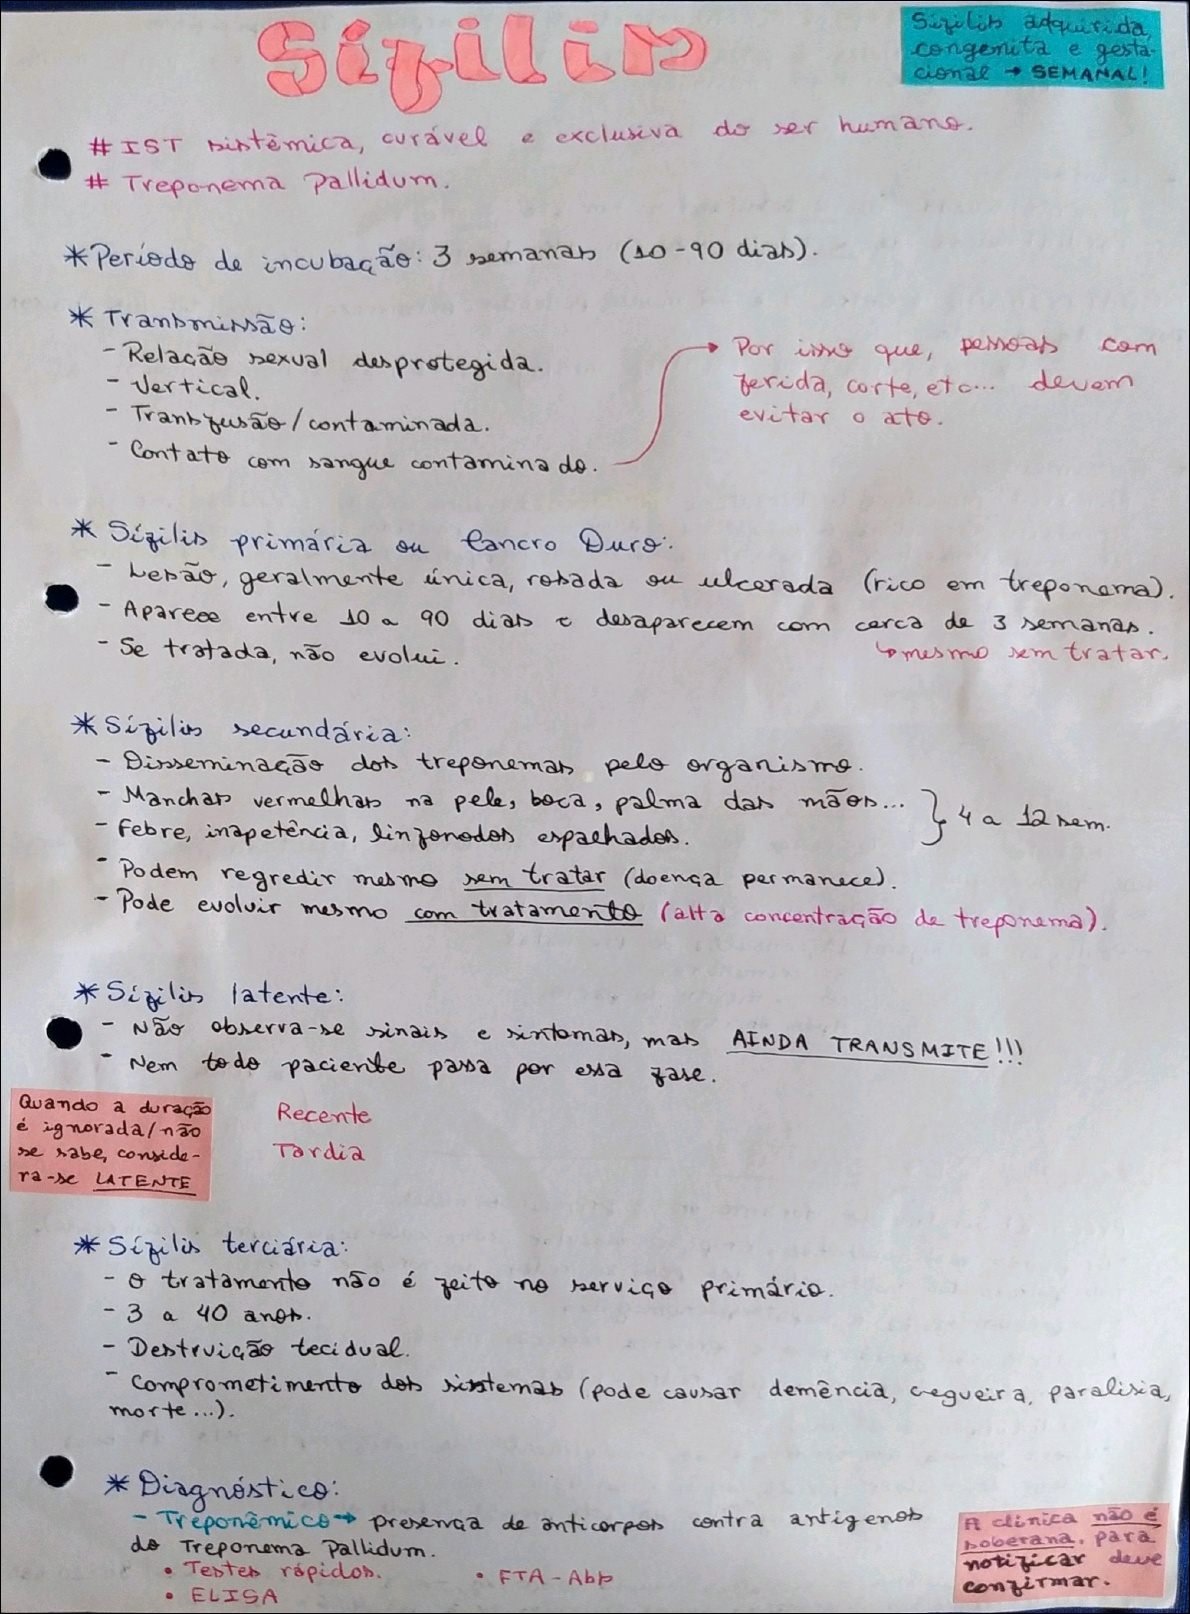 Sífilis
Sífilis adquirida,
congenita e gesta-
cional → SEMANAL!
# IST sistêmica, curável e exclusiva do ser humano.
# Treponema Pallidum.
* Período de incubação: 3 semanas (10-90 dias).
* Transmissão:
- Relação sexual desprotegida.
- Vertical.
- Transfusão/contaminada.
- Contato com sangue contaminado.
→ Por isso que, pessoas com
ferida, corte, etc... devem
evitar o ato.
* Sífilis primária ou Cancro Duro:
- Lesão, geralmente única, rosada ou ulcerada (rico em treponema).
- Aparece entre 10 a 90 dias e desaparecem com cerca de 3 semanas.
↳ mesmo sem tratar.
- Se tratada, não evolui.
* Sífilis secundária:
- Disseminação dos treponemas pelo organismo.
- Manchas vermelhas na pele, boca, palma das mãos...
- Febre, inapetência, linfonodos espalhados.
} 4 a 12 sem.
- Podem regredir mesmo sem tratar (doença permanece).
- Pode evoluir mesmo com tratamento (alta concentração de treponema).
* Sífilis latente:
- Não observa-se sinais e sintomas, mas AINDA TRANSMITE!!!
- Nem todo paciente passa por essa fase.
Quando a duração
é ignorada/não
se sabe, conside-
ra-se LATENTE
Recente
Tardia
* Sífilis terciária:
- O tratamento não é feito no serviço primário.
- 3 a 40 anos.
- Destruição tecidual.
- Comprometimento dos sistemas (pode causar demência, cegueira, paralisia,
morte...).
* Diagnóstico:
- Treponêmico → presença de anticorpos contra antígenos
do Treponema Pallidum.
• Testes rápidos. • FTA-Abs
• ELISA
A clínica não é
soberana, para
notificar deve
confirmar.